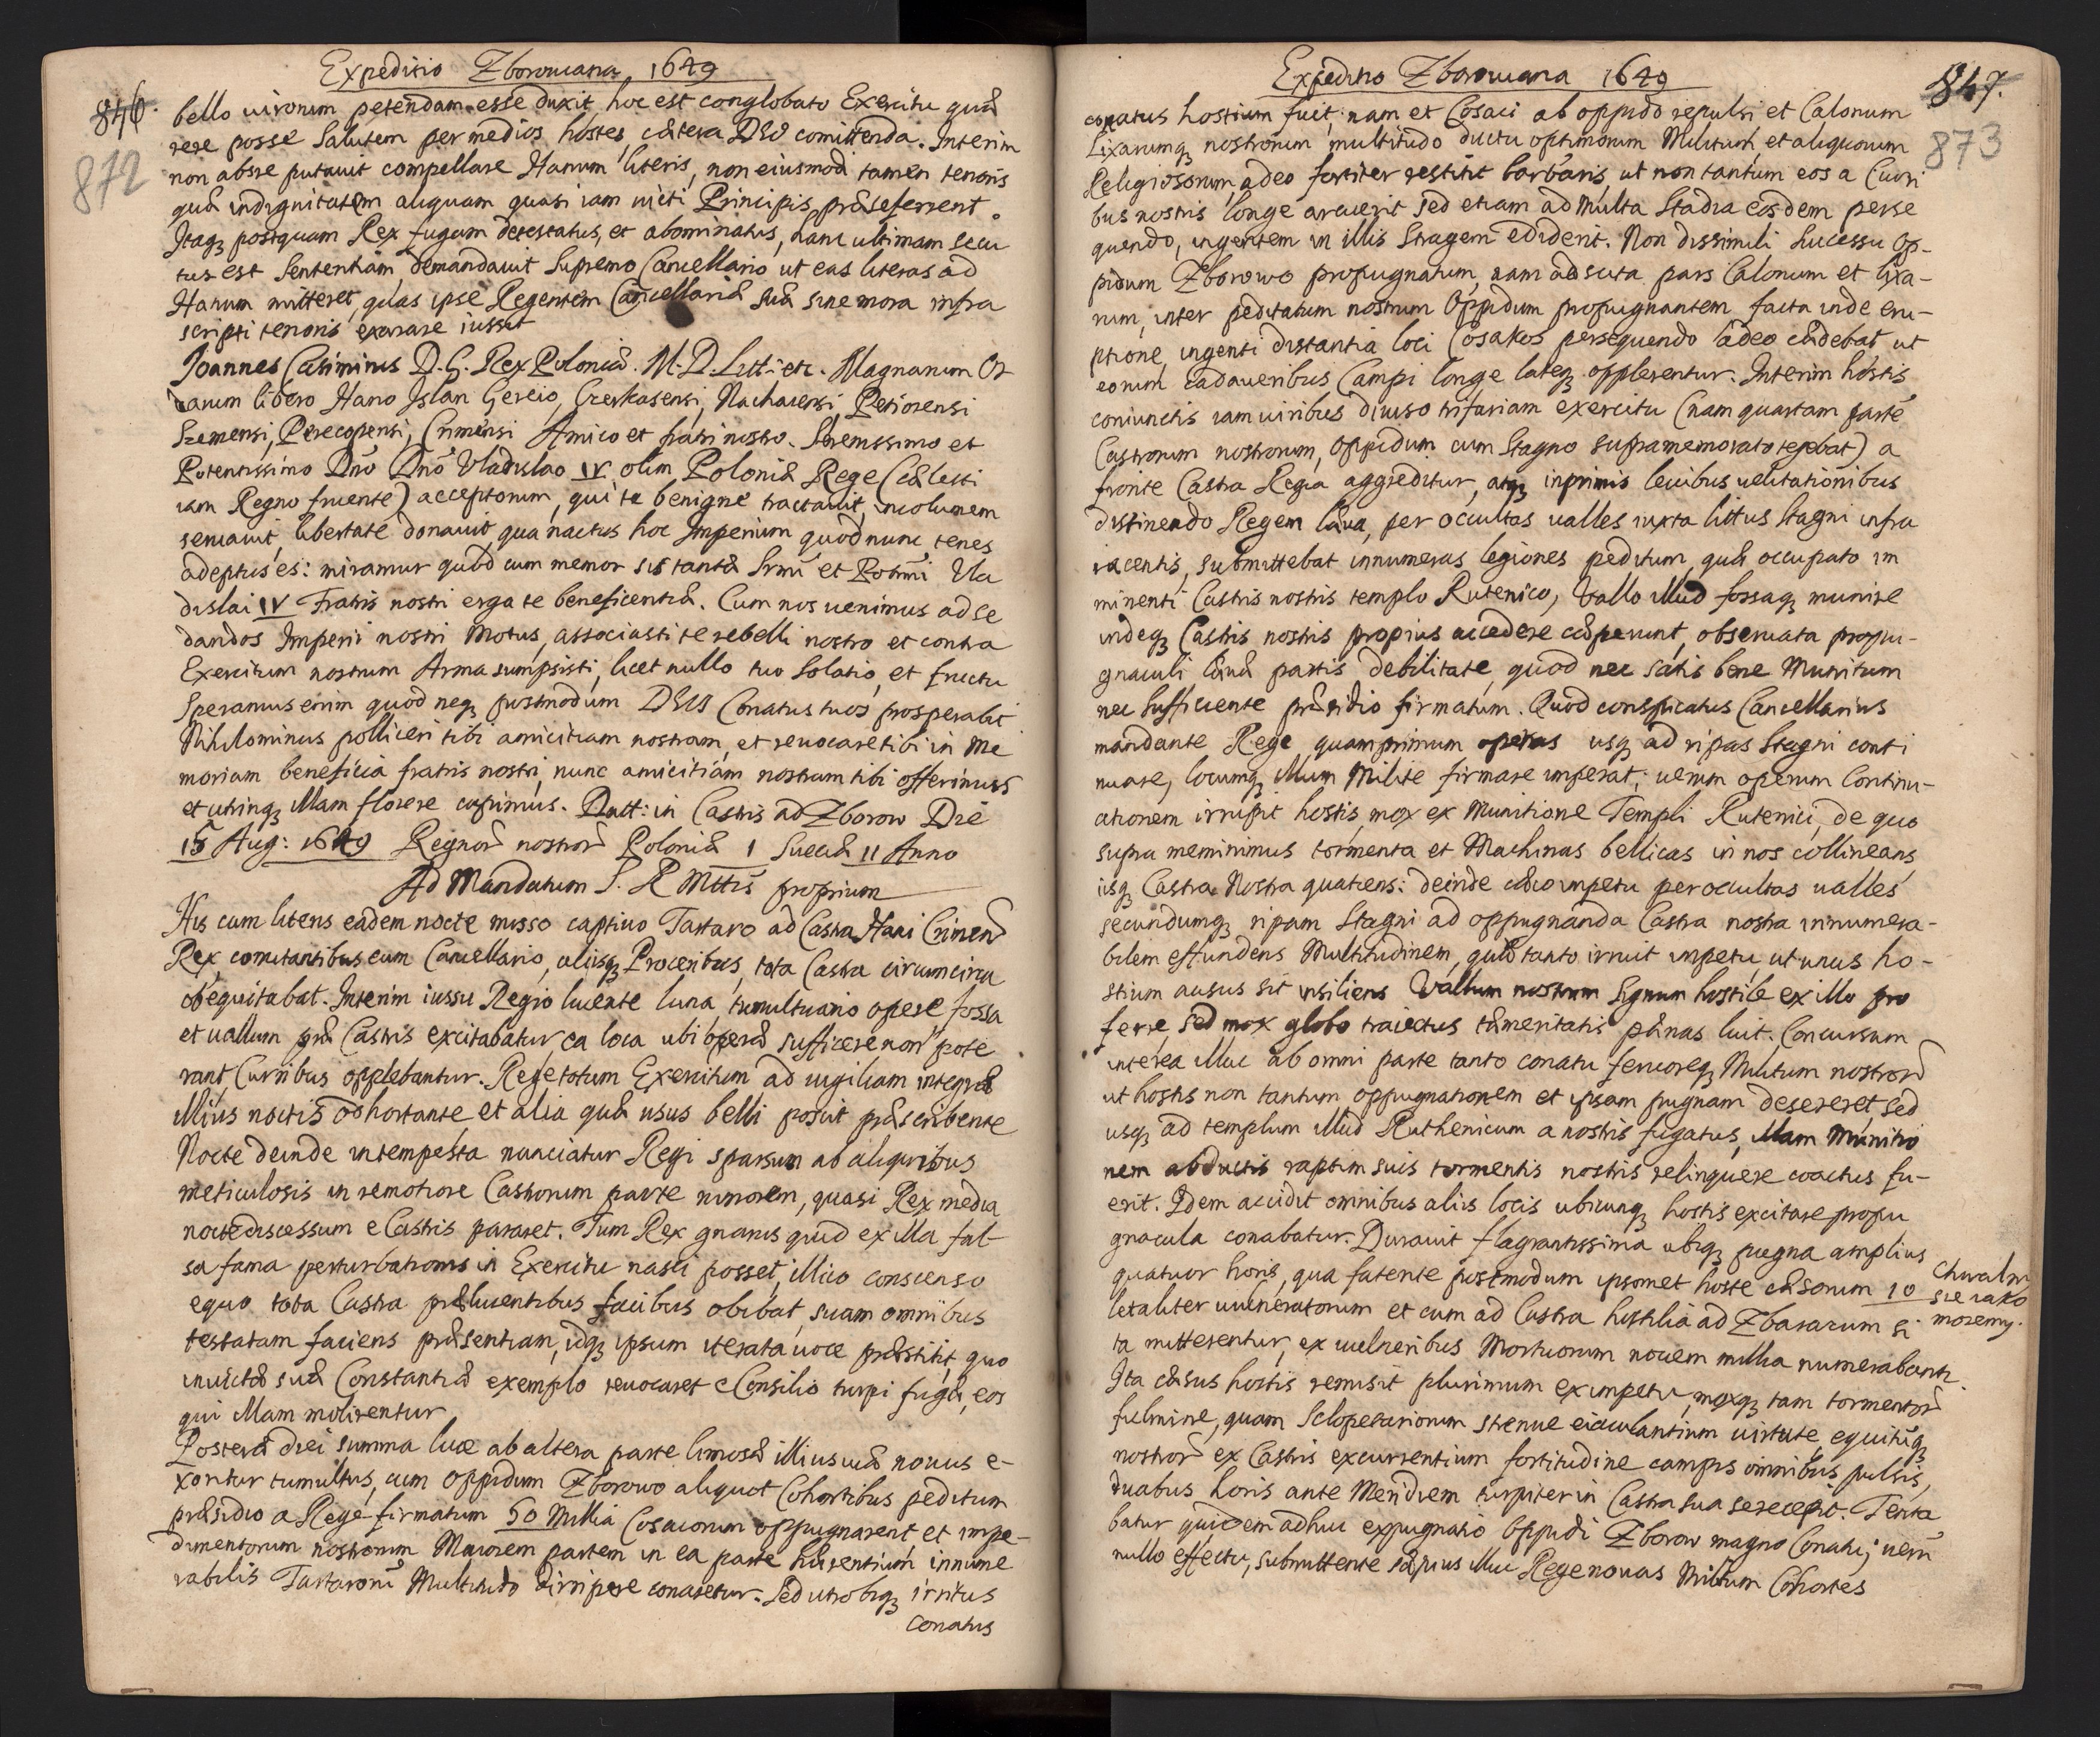 Expeditio Zborouiana 1649
846.
872
bello uirorum petendam esse duxit hoc est conglobato Exercitu quæ
rere posse Salutem per medios hostes, cætera DEO comittenda. Interim
non absre putauit compellare Hanum literis, non eiusmodi tamen tenoris
quæ indignitatem aliquam quasi iam uicti Principis, præseferrent.
Itaqȝ postquam Rex fugam detestatus, et abominatus, hanc ultimam secu
tus est Sententiam demandauit Supremo Cancellario ut eas literas ad
Hanum mitteret, quas ipse Regentem Cancellariæ suæ sine mora infra
scripti tenoris exarare iussit
Joannes Casimirus D. G. Rex Poloniæ. M. D. Litt: etc. Magnarum Or
darum libero Hano Islan Gereio, Czerkasensi, Nachaiensi, Petiorensi
Szemensi, Perecopensi, Crimensi Amico et fratri nostro. Serenissimo et
Potentissimo Dnō Dnō Vladislao IV olim Poloniæ Rege (cælesti
iam Regno fruente) acceptorum, qui te benigne tractauit, incolumem
seruauit, libertate donauit, qua nactus hoc Imperium quod nunc tenes
adeptus es: miramur quod cum memor sis tantæ Srmi et Potmi Vla
dislai IV Fratris nostri erga te beneficentiæ. Cum nos uenimus ad se
dandos Imperii nostri Motus, associasti te rebelli nostro et contra
Exercitum nostrum Arma sumpsisti, licet nullo tuo Solatio, et fructu
Speramus enim quod neqȝ postmodum DEUS Conatus tuos prosperabit
Nihilominus polliceri tibi amicitiam nostram, et reuocare tibi in Me
moriam beneficia fratris nostri, nunc amicitiam nostram tibi offerimus
et utrinqȝ illam florere cupimus. Datt: in Castris ad Zborow Die
15 Aug: 1649 Regnor nostror Poloniæ I Sueciæ II Anno
Ad Mandatum S. R Mttis proprium
His cum literis eadem nocte misso captiuo Tartaro ad Castra Hani Crimen
Rex, comitantibus eum Cancellario, aliisqȝ Proceribus, tota Castra circumcirca
obequitabat. Interim iussu Regio lucente luna, tumultuario opere fossa
et uallum præ Castris excitabatur, ea loca ubi operæ sufficere non pote
rant Curribus opplebantur. Rege totum Exercitum ad uigiliam integræ
illius noctis adhortante, et alia quæ usus belli poscit præscribente
Nocte deinde intempesta nunciatur Regi sparsum ab aliquibus
meticulosis in remotiore Castrorum parte rumorem, quasi Rex media
nocte discessum e Castris pararet. Tum Rex gnarus quid ex illa fal-
sa fama perturbationis in Exercitu nasci posset, illico conscenso
equo tota Castra prælucentibus facibus obibat, suam omnibus
testatam faciens præsentiam, idqȝ ipsum iterata uoce præstitit, quo
inuictæ suæ Constantiæ exemplo reuocaret e Consilio turpi fugæ, eos
qui illam molirentur
Posteræ diei summa luce ab altera parte limosæ illius uiæ nouus e-
xoritur tumultus, cum Oppidum Zborowo aliquot Cohortibus peditum
præsidio a Rege firmatum 50 Millia Cosacorum oppugnarent, et impe-
dimentorum nostrorum Maiorem partem in ea parte hærentium innume
rabilis Tartarorū Multitudo diripere conaretur. Sed utrobiqȝ irritus
conatus
Expeditio Zborowiana 1649
847.
873
conatus hostium fuit; nam et Cosaci ab oppido repulsi et Calonum
Lixarumqȝ nostrorum multitudo ductu optimorum Militum, et aliquorum
Religiosorum, adeo fortiter restitit barbaris, ut non tantum eos a Curri
bus nostris longe arcuerit sed etiam ad Multa Stadia eosdem perse
quendo, ingentem in illis Stragem ediderit. Non dissimili Sucessu Op-
pidum Zborowo propugnatum, nam adscita pars Calonum et lixa-
rum, inter peditatum nostrum Oppidum propugnantem facta inde eru-
ptione, ingenti distantia loci Cosakos persequendo adeo cædebat, ut
eorum cadaueribus Campi longe lateqȝ opplerentur. Interim hostis
coniunctis iam uiribus diuiso trifariam exercitu (nam quartam partē
Castrorum nostrorum, oppidum cum Stagno supramemorato tegebat) a
fronte Castra Regia aggreditur, atqȝ inprimis leuibus uelitationibus
distinendo Regem læua, per occultas ualles iuxta littus Stagni infra
iacentis, submittebat innumeras legiones peditum, quæ occupato im
minenti Castris nostris templo Rutenico, Vallo illud fossaqȝ munire
indeqȝ Castris nostris propius accedere cæperunt, obseruata propu-
gnaculi læuæ partis debilitate, quod nec satis bene Munitum
nec sufficiente præsidio firmatum. Quod conspicatus Cancellarius
mandante Rege quamprimum operas usqȝ ad ripas Stagni conti
nuare, locumqȝ illum Milite firmare imperat; uerum operum Continu-
ationem irrupit hostis, mox ex Munitione Templi Rutenici, de quo
supra meminimus tormenta et Machinas bellicas in nos collineans
iisqȝ Castra Nostra quatiens: deinde cæco impetu per occultas ualles
secundumqȝ ripam Stagni ad oppugnanda Castra nostra innumera-
bilem effundens Multitudinem, quæ tanto irruit impetu, ut unus ho-
stium ausus sit insiliens Vallum nostrum Signum hostile ex illo pro
ferre, sed mox globo traiectus tæmeritatis pænas luit. Concursum
interea illuc ab omni parte tanto conatu feruoreqȝ Militum nostror
ut hostis non tantum oppugnationem et ipsam pugnam desereret, sed
usqȝ ad templum illud Ruthenicum a nostris fugatus, illam munitio
nem abductis raptim suis tormentis nostris relinquere coactus fu-
erit. Idem accidit omnibus aliis locis ubicunqȝ hostis excitare propu
gnacula conabatur. Durauit flagrantissima ubiqȝ pugna amplius
quatuor horis, qua fatente postmodum ipsomet hoste cæsorum 10
letaliter uulneratorum et cum ad Castra hostilia ad Zbararum si
ta mitterentur, ex uulneribus Mortuorum nouem millia numerabantr.
Chwalm
sie iako
mozemy.
Ita cæsus hostis remisit plurimum ex impetu, moxqȝ tam tormentor
fulmine, quam Sclopetariorum strenue eiaculantium uirtute, equitūqȝ
nostror ex Castris excurrentium fortitudine campis omnibus pulsis,
duabus horis ante Meridiem turpiter in Castra sua se recepit. Tenta
batur quidem adhuc expugnatio Oppidi Zborow magno Conatu; uerū
nullo effectu, submittente sæpius illuc Rege nouas Militum Cohortes